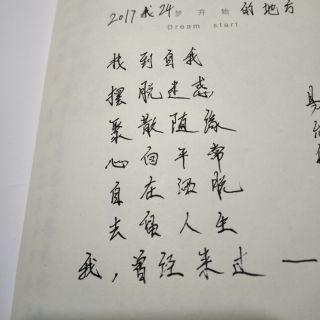 2017 我24 梦开始的地方
Dream start
找到自我
摆脱迷惑
聚散随缘
心向平常
自在洒脱
去负人生
我，曾经来过 —